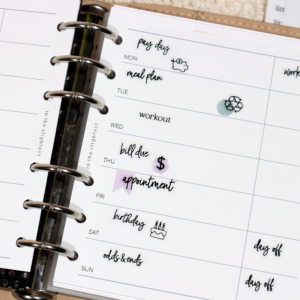 list
pay day
MON
work
meal plan
TUE
workout
WED
bill due
$
THU
appointment
FRI
birthday
SAT
day off
odds & ends
SUN
day off
in the slightest